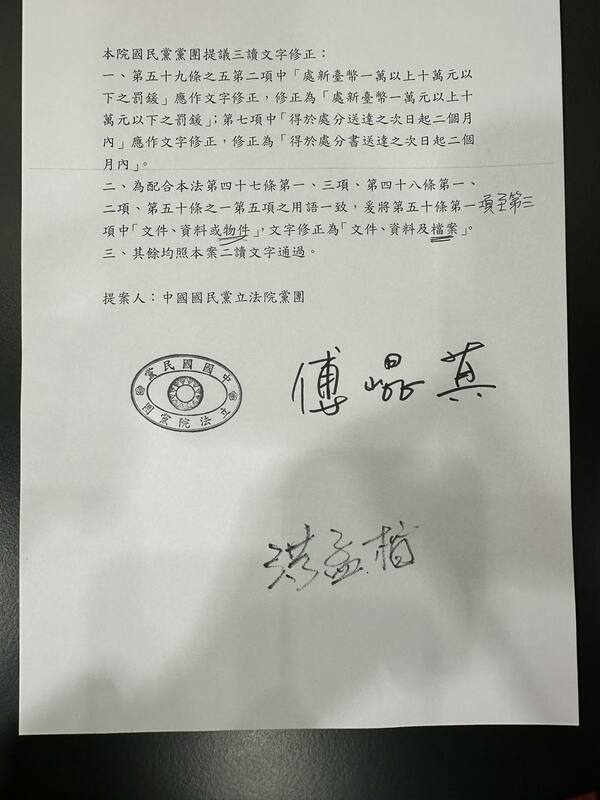 本院國民黨黨團提議三讀文字修正：
一、第五十九條之五第二項中「處新臺幣一萬以上十萬元以
下之罰鍰」應作文字修正，修正為「處新臺幣一萬元以上十
萬元以下之罰鍰」；第七項中「得於處分送達之次日起二個月
內」應作文字修正，修正為「得於處分書送達之次日起二個
月內」。
二、為配合本法第四十七條第一、三項、第四十八條第一、
二項、第五十條之一第五項之用語一致，爰將第五十條第一項至第三
項中「文件、資料或物件」，文字修正為「文件、資料及檔案」。
三、其餘均照本案二讀文字通過。
提案人：中國國民黨立法院黨團
中國國民黨
立法院黨團
傅崐萁
洪孟楷